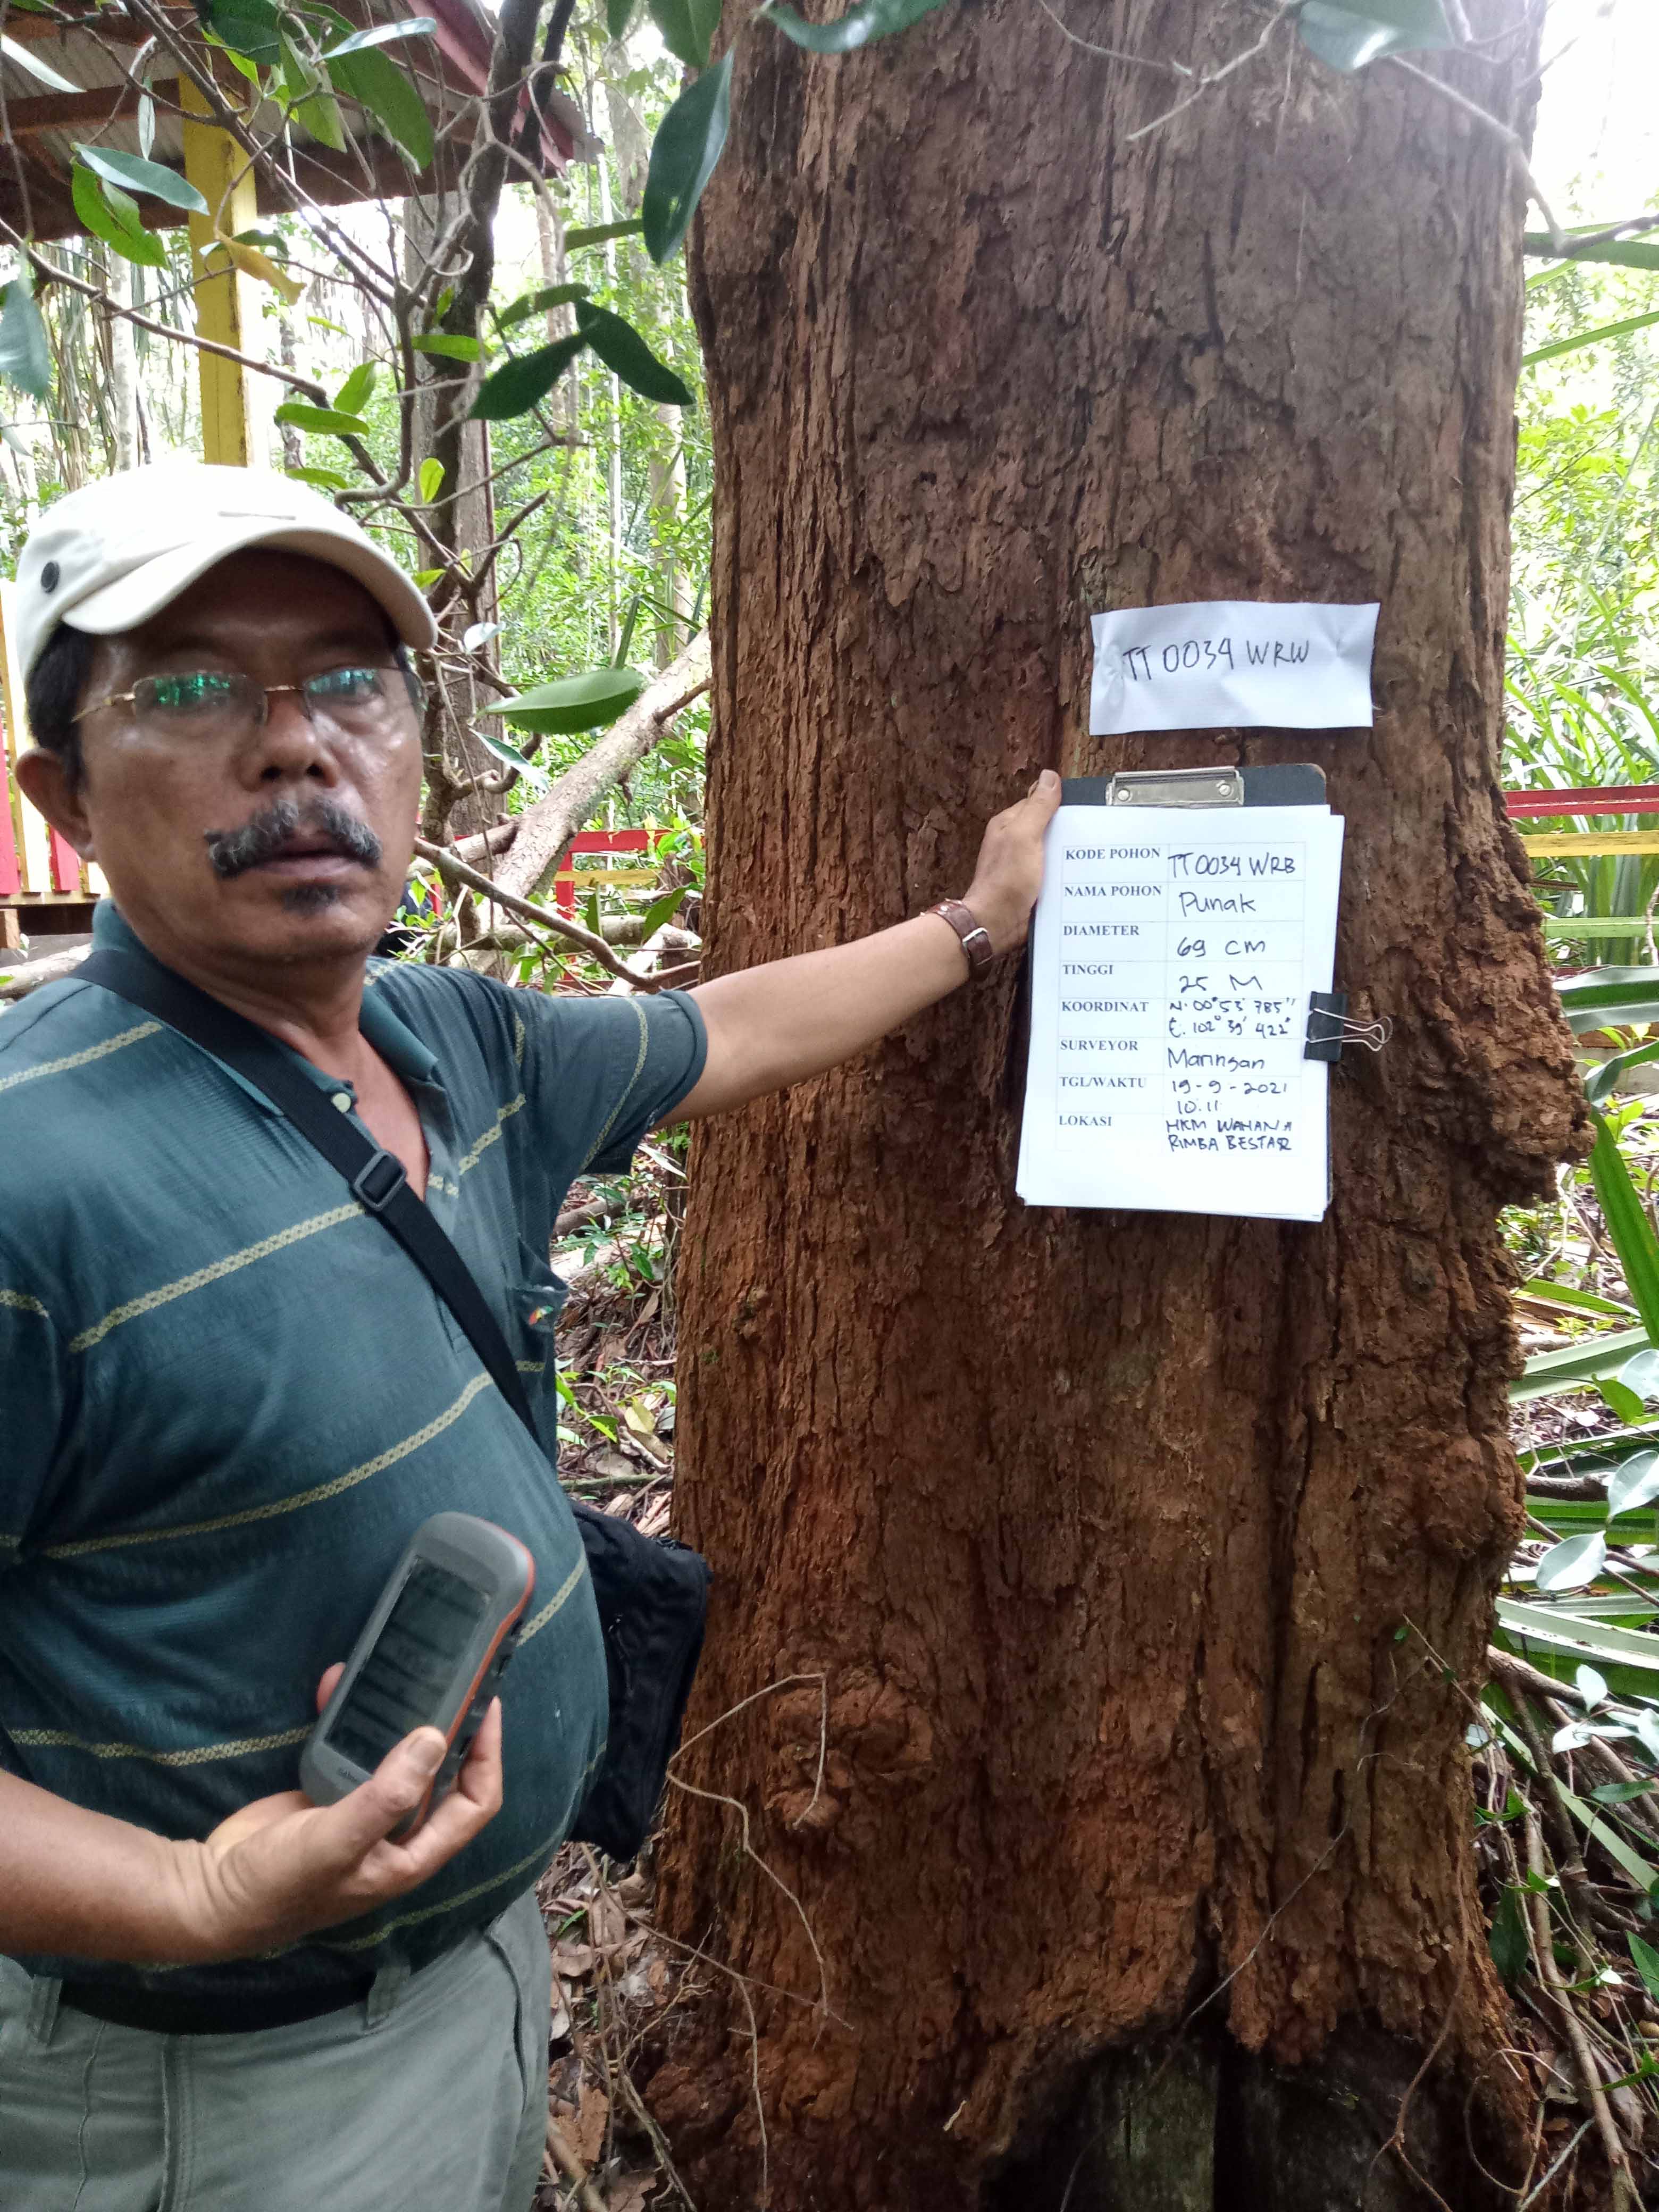 TT 0034 WRW
KODE POHON TT 0034 WRB
NAMA POHON Punak
DIAMETER 69 CM
TINGGI 25 M
KOORDINAT N. 00° 53' 785"
E. 102° 39' 422"
SURVEYOR Maringan
TGL/WAKTU 19-9-2021
10.11
LOKASI HKM WAHANA
RIMBA BESTARI